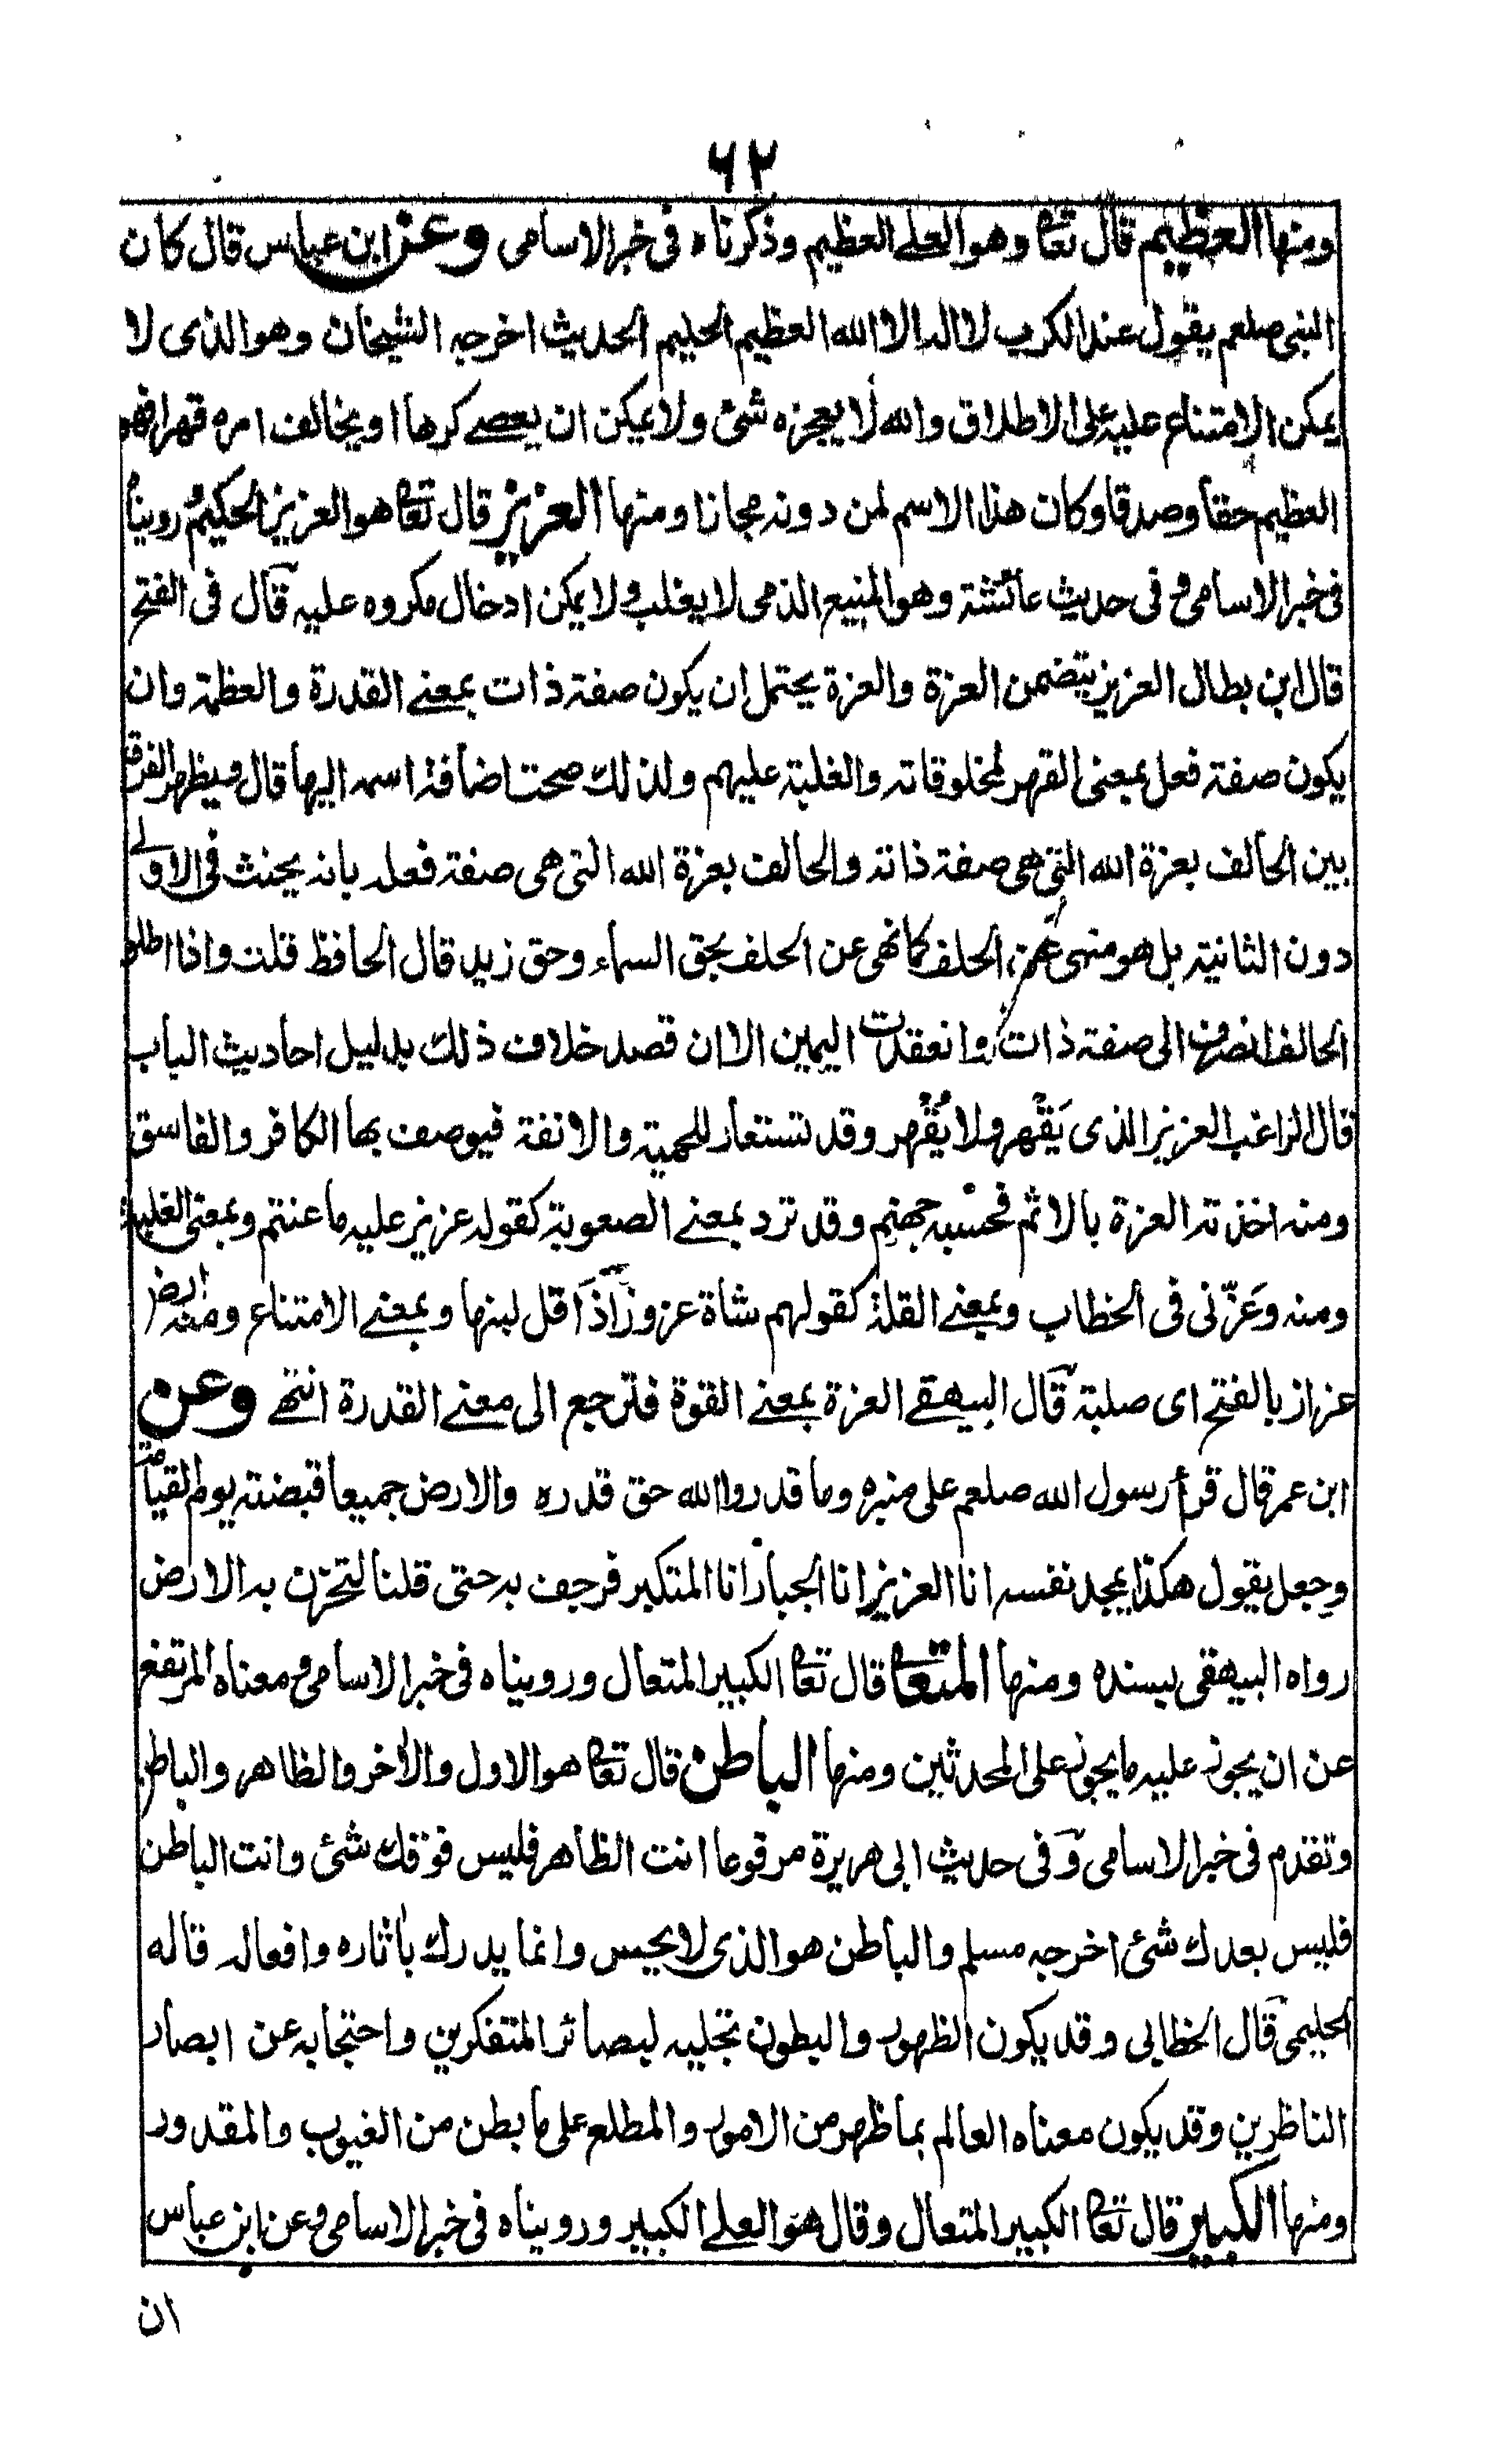 ٦٢
ومنها العظيم قال تعا وهو العلے العظيم وذكرناه فى خبر الاسامى وعن ابن عباس قال كان
النبى صلعم يقول عند الكرب لا اله الا الله العظيم الحليم الحديث اخرجه الشيخان وهو الذى لا
يمكن الامتناع عليه على الاطلاق والله لا يعجزه شئ ولا يمكن ان يعصے كرها او يخالف امره قهرا فهو
العظيم حقا وصدقا وكان هذا الاسم لمن دونه مجازا ومنها العزيز قال تعا هو العزيز الحكيم روينا
فى خبر الاسامى و فى حديث عائشة وهو المنيع الذى لا يغلب ولا يمكن ادخال مكروه عليه قال فى الفتح
قال ابن بطال العزيز يتضمن العزة والعزة يحتمل ان يكون صفة ذات بمعنے القدرة والعظمة وان
يكون صفة فعل بمعنى القهر لمخلوقاته والغلبة عليهم ولذلك صحت اضافة اسمه اليها قال ويظهر الفرق
بين الحالف بعزة الله التى هى صفة ذاته والحالف بعزة الله التى هى صفة فعله بانه يحنث فى الاولے
دون الثانية بل هو منهى عن الحلف كما نهى عن الحلف بحق السماء وحق زيد قال الحافظ قلت واذا اطلق
الحالف انصرف الى صفة ذات وانعقدت اليمين الا ان قصد خلاف ذلك بدليل احاديث الباب
قال الراغب العزيز الذى يَقْهر ولا يُقْهر وقد تستعار للحمية والانفة فيوصف بها الكافر والفاسق
ومنه اخذته العزة بالاثم فحسبه جهنم وقد ترد بمعنے الصعوبة كقوله عزيز عليه ما عنتم وبمعنى الغلبة
ومنه وَعَزّنى فى الخطاب وبمعنے القلة كقولهم شاة عزوز اذا قل لبنها وبمعنے الامتناع ومنه ارض
عزاز بالفتح اى صلبة قال البيهقے العزة بمعنے القوة فترجع الى معنے القدرة انتهے وعن
ابن عمر قال قرأ رسول الله صلعم على منبره وما قدروا الله حق قدره والارض جميعا قبضته يوم القيامة
وجعل يقول هكذا يمجد نفسه انا العزيز انا الجبار انا المتكبر فرجف به حتى قلنا لتخرن به الارض
رواه البيهقى بسنده ومنها المتعا قال تعا الكبير المتعال وروبيناه فى خبر الاسامى و معناه المرتفع
عن ان يجوز عليه ما يجوز على المحدثين ومنها الباطن قال تعا هو الاول والآخر والظاهر والباطن
وتقدم فى خبر الاسامى و فى حديث ابى هريرة مرفوعا انت الظاهر فليس فوقك شئ وانت الباطن
فليس بعدك شئ اخرجه مسلم والباطن هو الذى لا يحس وانما يدرك باٰثاره وافعاله قاله
الحليمى قال الخطابى وقد يكون الظهور والبطون تجليه لبصائر المتفكرين واحتجابه عن ابصار
الناظرين وقد يكون معناه العالم بما ظهر من الامور والمطلع على ما بطن من الغيوب والمقدور
ومنها الكبير قال تعا الكبير المتعال وقال هو العلے الكبير وروبيناه فى خبر الاسامى و عن ابن عباس
ان